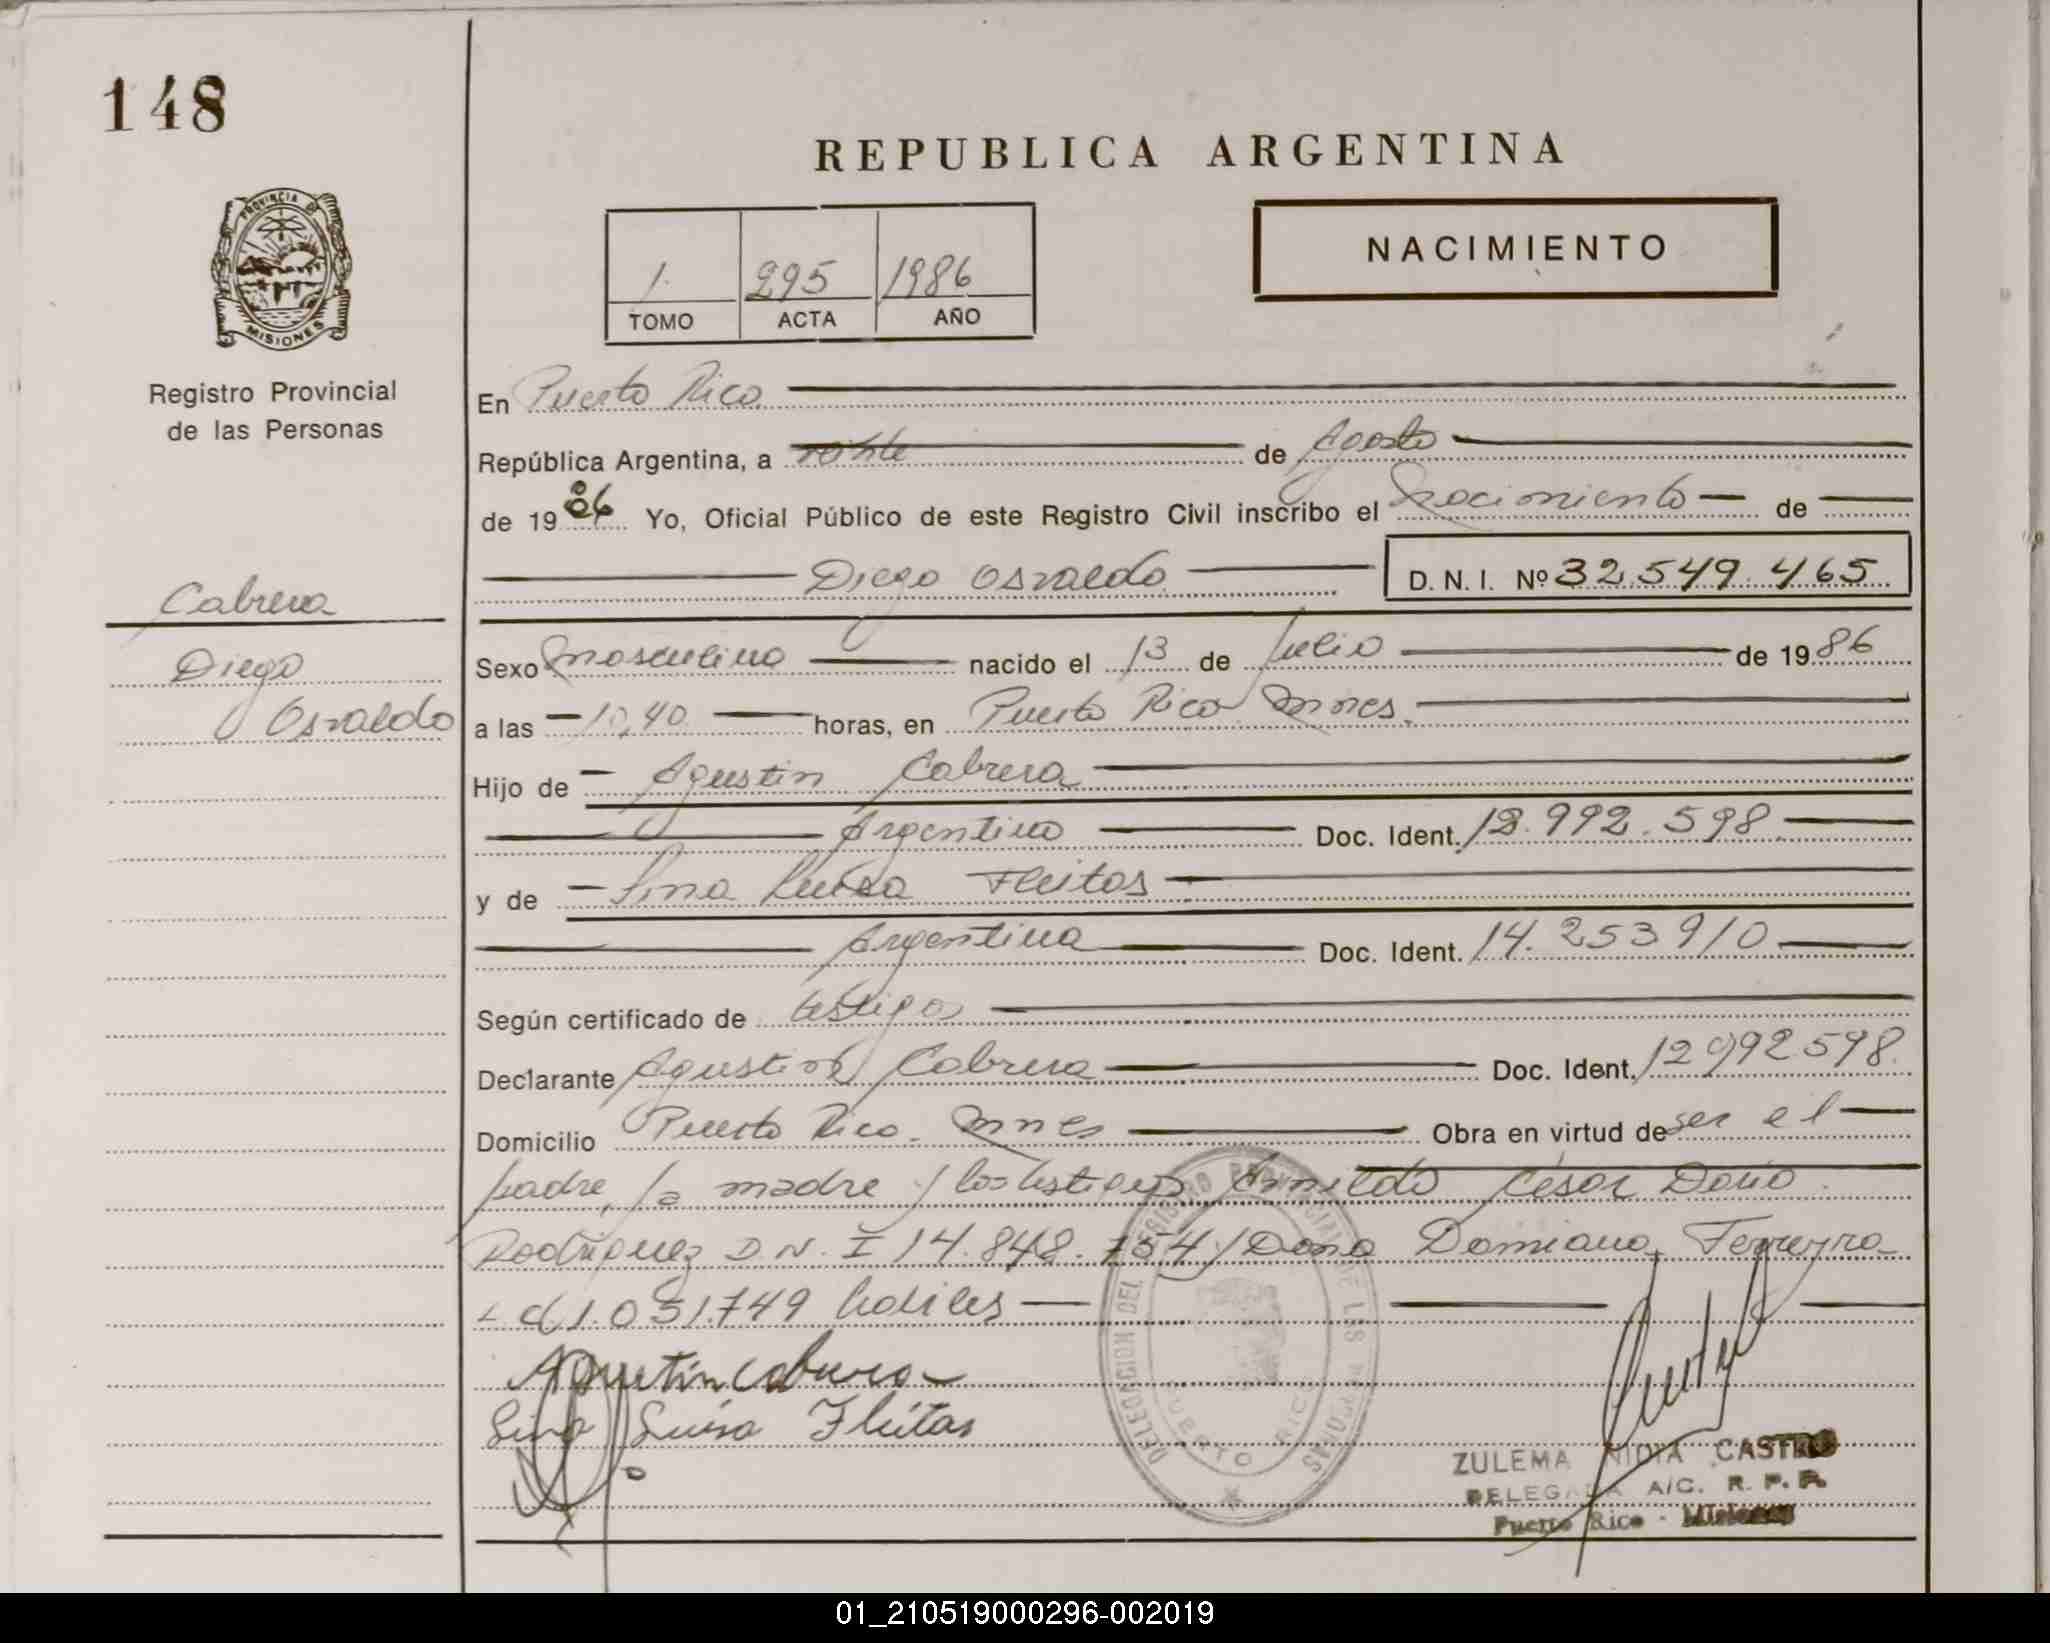 148
REPUBLICA ARGENTINA
NACIMIENTO
1. 295 1986
TOMO ACTA AÑO
PROVINCIA DE MISIONES
Registro Provincial
de las Personas
En Puerto Rico
República Argentina, a de Agosto
de 1986 Yo, Oficial Público de este Registro Civil inscribo el Nacimiento de
Diego Osvaldo D. N. I. Nº 32.549.465
Cabrera
Diego
Osvaldo
Sexo masculino nacido el 13 de Julio de 1986
a las 10,40 horas, en Puerto Rico Mnes.
Hijo de Agustin Cabrera
Argentino Doc. Ident. 12.992.598
y de Lina Luisa Fleitas
Argentina Doc. Ident. 14.253910
Según certificado de testigos
Declarante Agustin Cabrera Doc. Ident. 12992598
Domicilio Puerto Rico. Mnes Obra en virtud de ser el
padre, la madre y los testigos Arnildo César Dario
Rodriguez D.N.I 14.848.754 y Dona Damiana Ferreyra
L.C 1.051.749 habiles
Agustin Cabrera
Lina Luisa Fleitas
DELEGACION DEL REGISTRO PROVINCIAL DE LAS PERSONAS
PUERTO RICO
ZULEMA NIDIA CASTRO
DELEGADA A/C. R. P. P.
Puerto Rico - Misiones
01_210519000296-002019